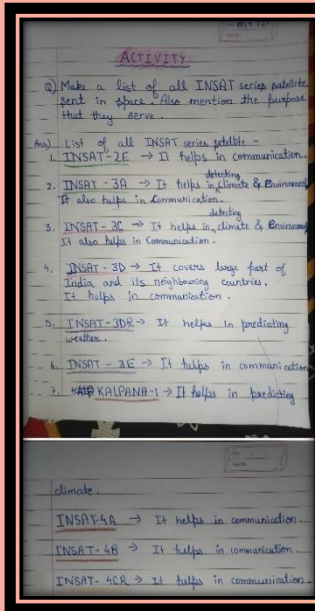 ACTIVITY
Q) Make a list of all INSAT series satellite
sent in space. Also mention the purpose
that they serve.
Ans) List of all INSAT series satellite -
1. INSAT-2E → It helps in communication.
detecting
2. INSAT - 3A → It helps in climate & Environment
It also helps in Communication.
detecting
3. INSAT - 3C → It helps in climate & Environment
It also helps in Communication.
4. INSAT - 3D → It covers large part of
India and its neighbouring countries.
It helps in communication.
5. INSAT-3DR → It helps in predicting
weather.
6. INSAT - 3E → It helps in communication
7. KALPANA-1 → It helps in predicting
climate.
INSAT-4A → It helps in communication.
INSAT-4B → It helps in communication.
INSAT-4CR → It helps in communication.